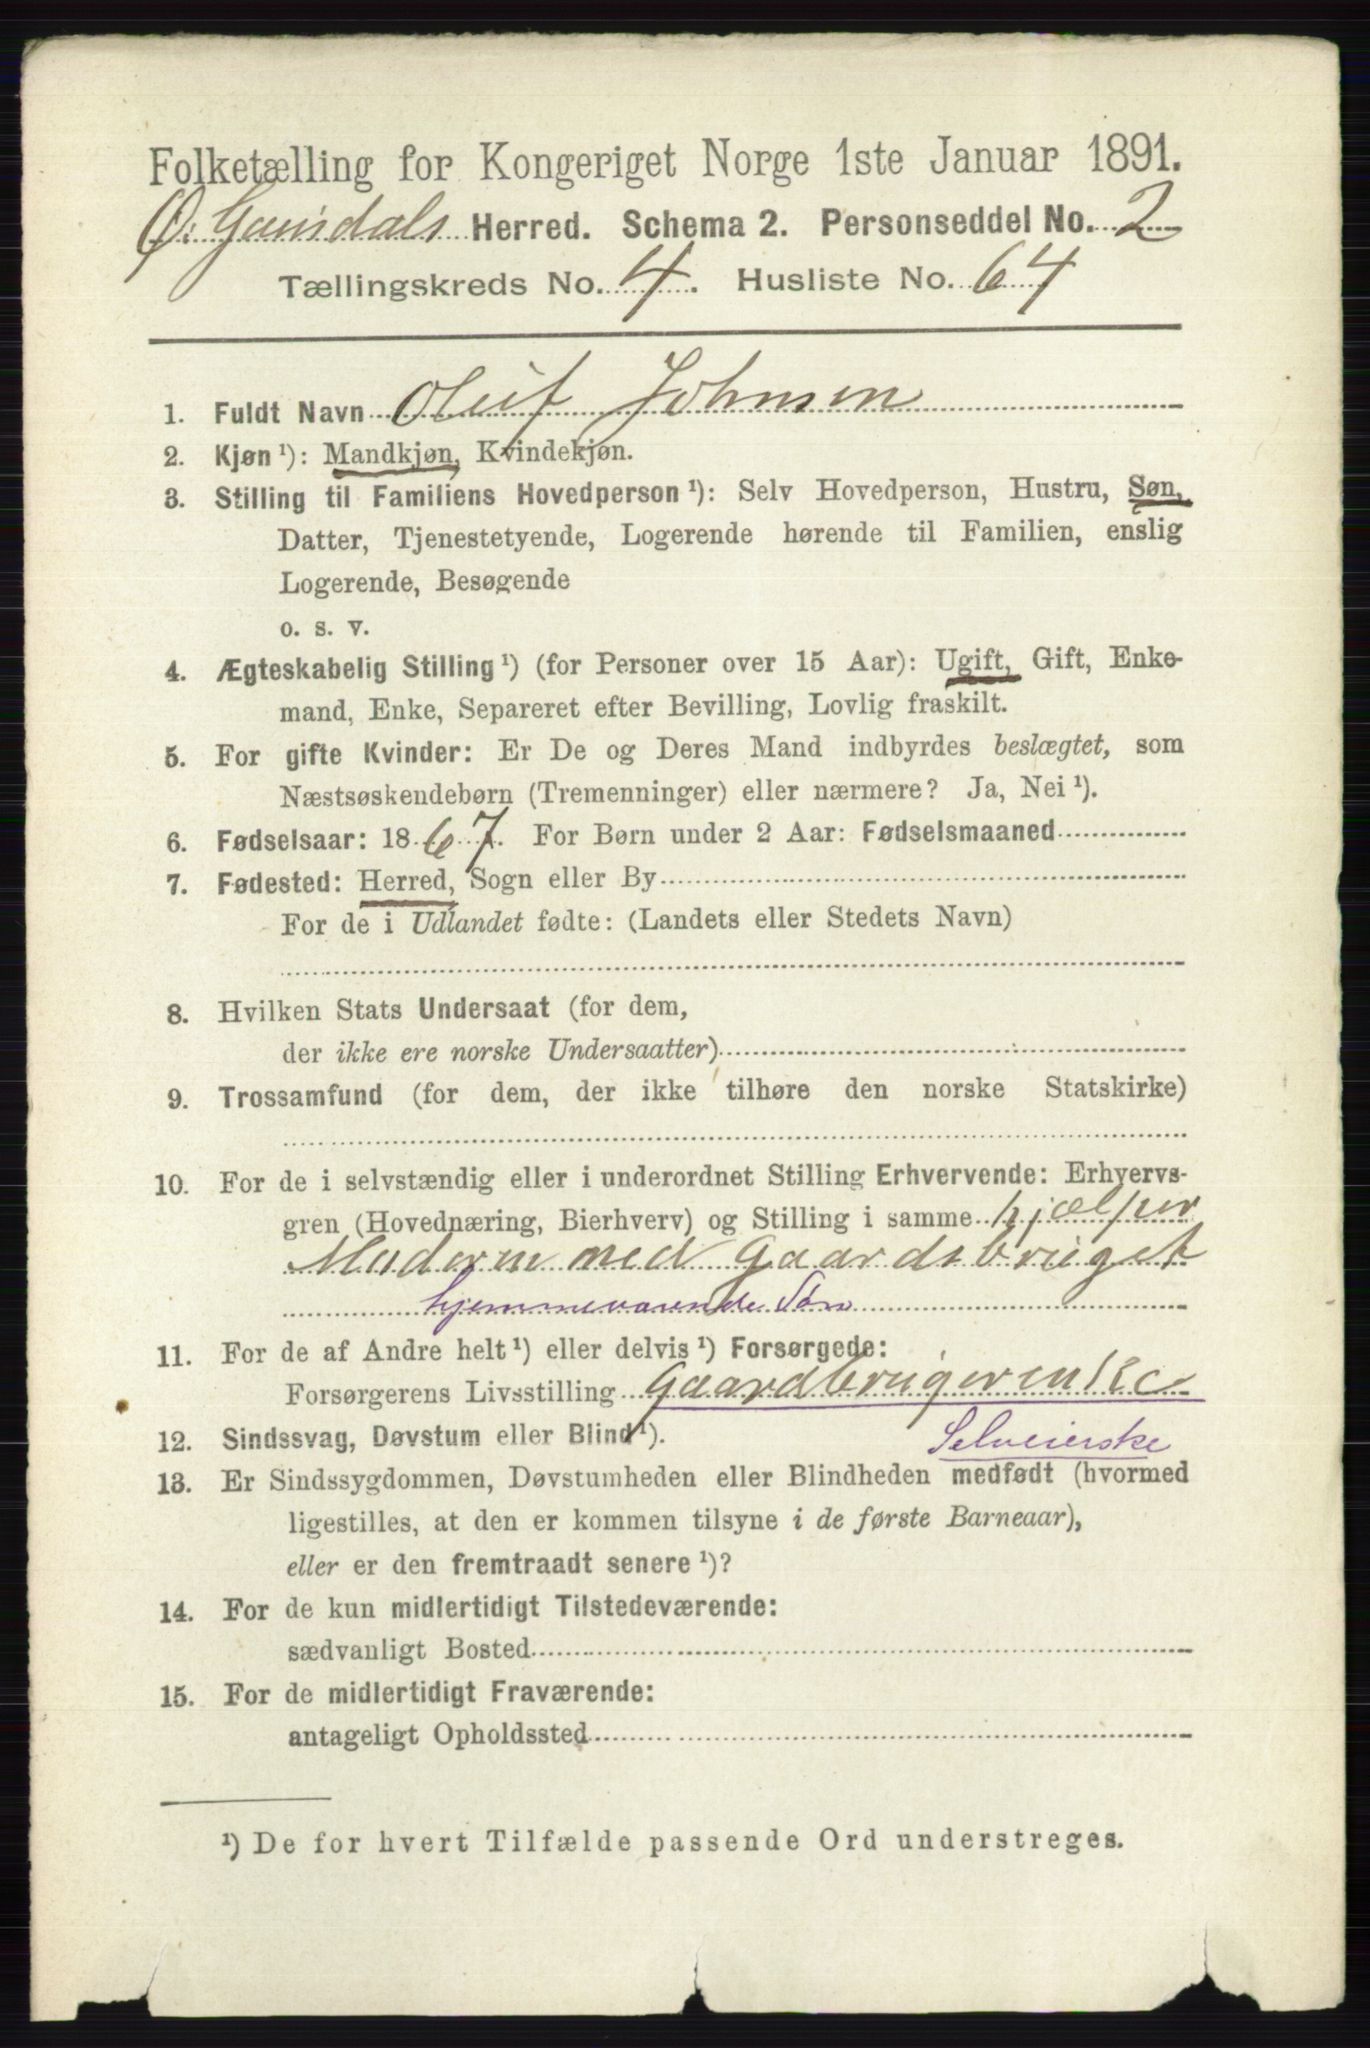 Folketælling for Kongeriget Norge 1ste Januar 1891.
Ø. Gausdals Herred. Schema 2. Personseddel No. 2
Tællingskreds No. 4. Husliste No. 64
1. Fuldt Navn Oluf Johnsen
2. Kjøn ¹): Mandkjøn, Kvindekjøn.
3. Stilling til Familiens Hovedperson ¹): Selv Hovedperson, Hustru, Søn,
Datter, Tjenestetyende, Logerende hørende til Familien, enslig
Logerende, Besøgende
o. s. v.
4. Ægteskabelig Stilling ¹) (for Personer over 15 Aar): Ugift, Gift, Enke-
mand, Enke, Separeret efter Bevilling, Lovlig fraskilt.
5. For gifte Kvinder: Er De og Deres Mand indbyrdes beslægtet, som
Næstsøskendebørn (Tremenninger) eller nærmere? Ja, Nei ¹).
6. Fødselsaar: 1867. For Børn under 2 Aar: Fødselsmaaned
7. Fødested: Herred, Sogn eller By
For de i Udlandet fødte: (Landets eller Stedets Navn)
8. Hvilken Stats Undersaat (for dem,
der ikke ere norske Undersaatter)
9. Trossamfund (for dem, der ikke tilhøre den norske Statskirke)
10. For de i selvstændig eller i underordnet Stilling Erhvervende: Erhvervs-
gren (Hovednæring, Bierhverv) og Stilling i samme hjælper
Moderen med Gaardsbruget
hjemmeværende Søn
11. For de af Andre helt ¹) eller delvis ¹) Forsørgede:
Forsørgerens Livsstilling Gaardbrugerenke
Selveierske
12. Sindssvag, Døvstum eller Blind ¹).
13. Er Sindssygdommen, Døvstumheden eller Blindheden medfødt (hvormed
ligestilles, at den er kommen tilsyne i de første Barneaar),
eller er den fremtraadt senere ¹)?
14. For de kun midlertidigt Tilstedeværende:
sædvanligt Bosted
15. For de midlertidigt Fraværende:
antageligt Opholdssted
¹) De for hvert Tilfælde passende Ord understreges.